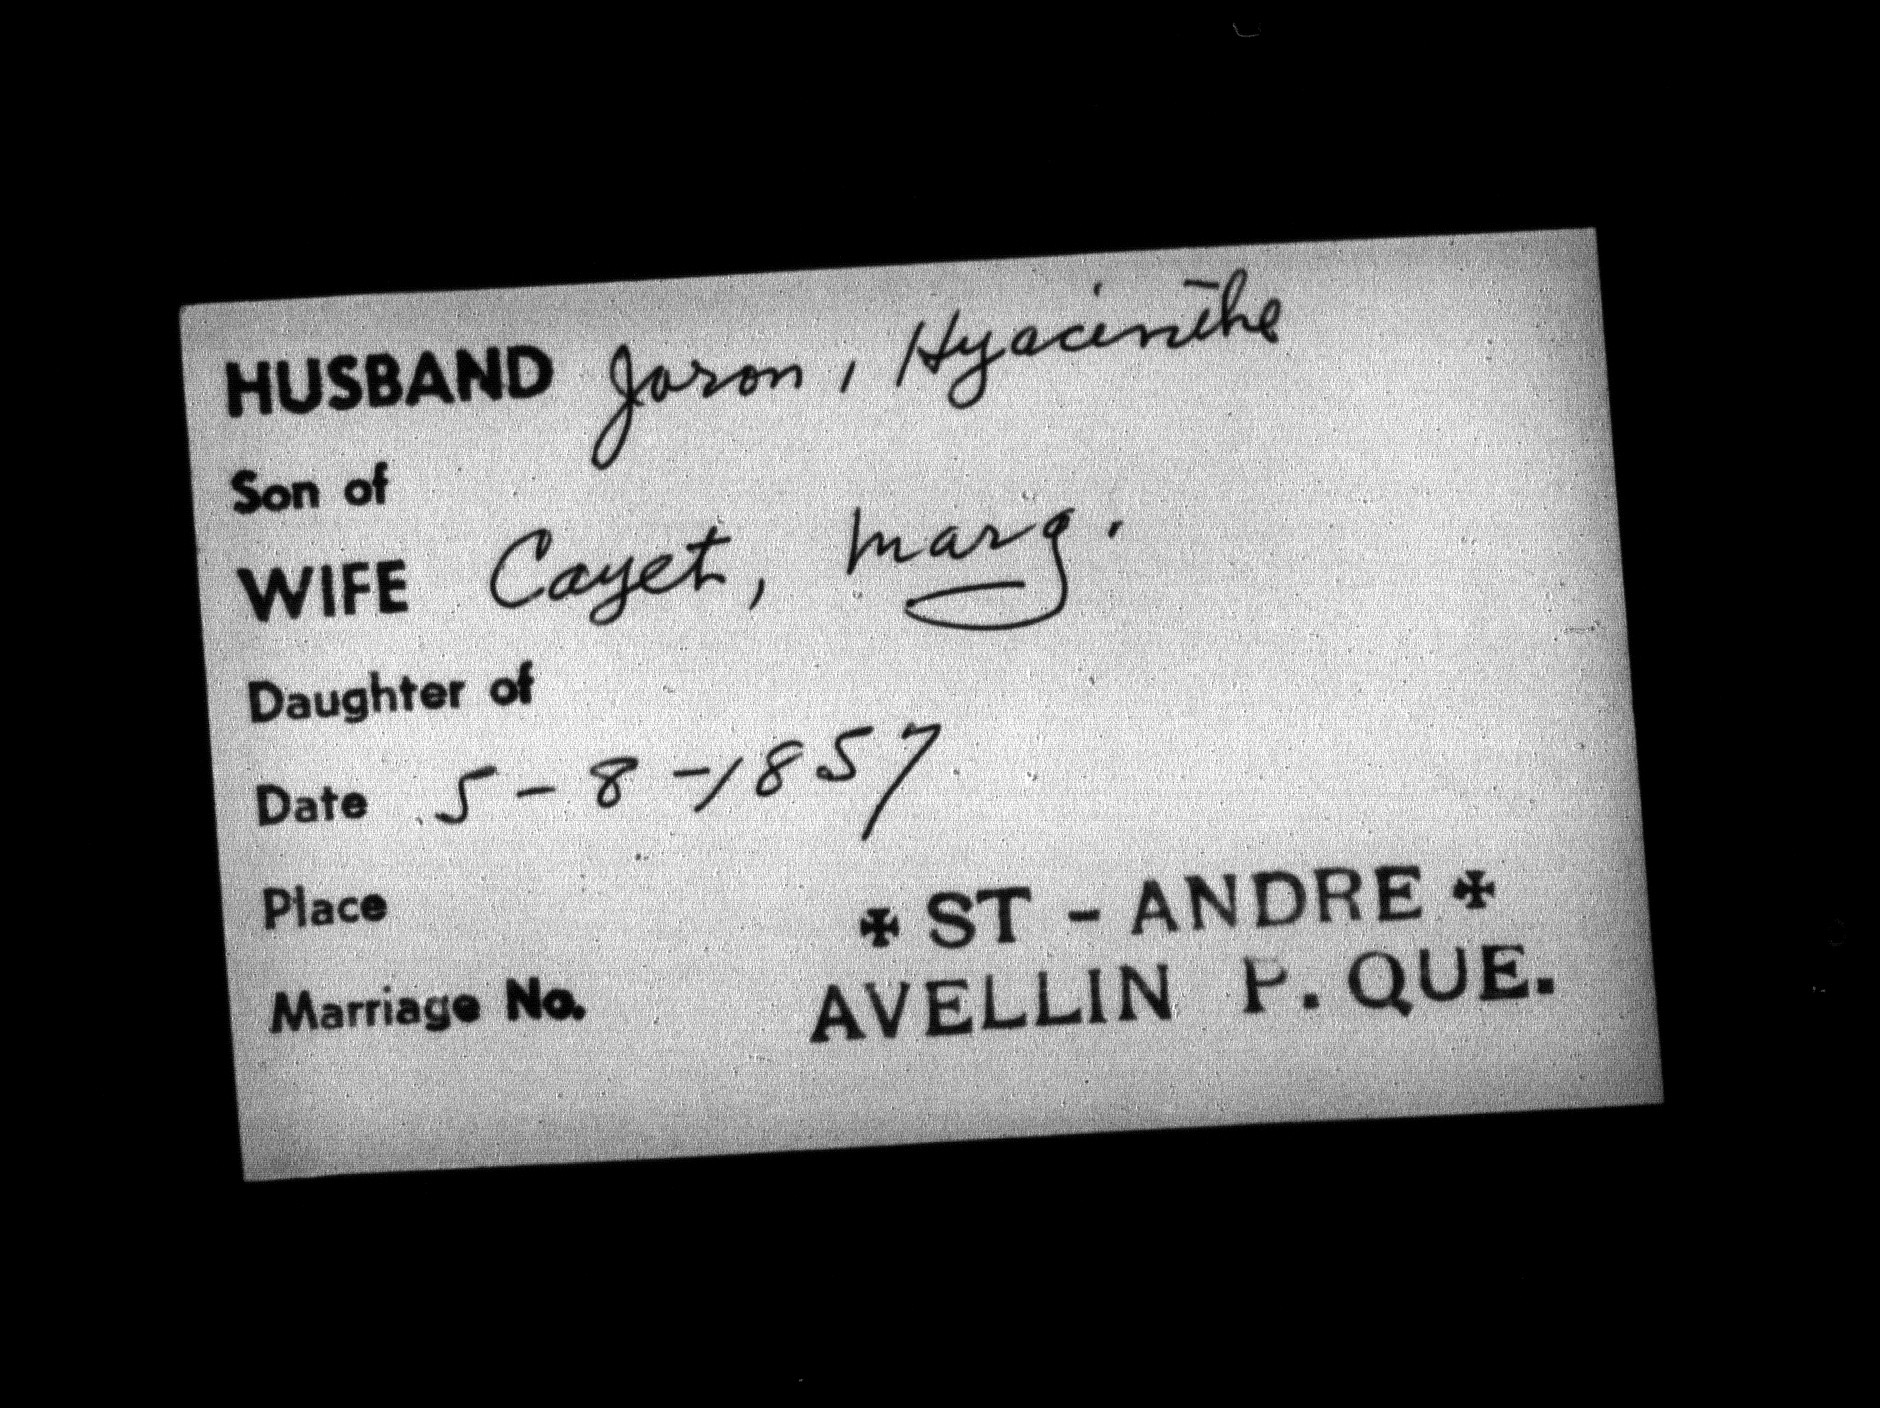 HUSBAND Jaron, Hyacinthe
Son of
WIFE Cayet, Marg.
Daughter of
Date 5-8-1857
Place
✠ ST-ANDRE ✠
Marriage No.
AVELLIN P. QUE.